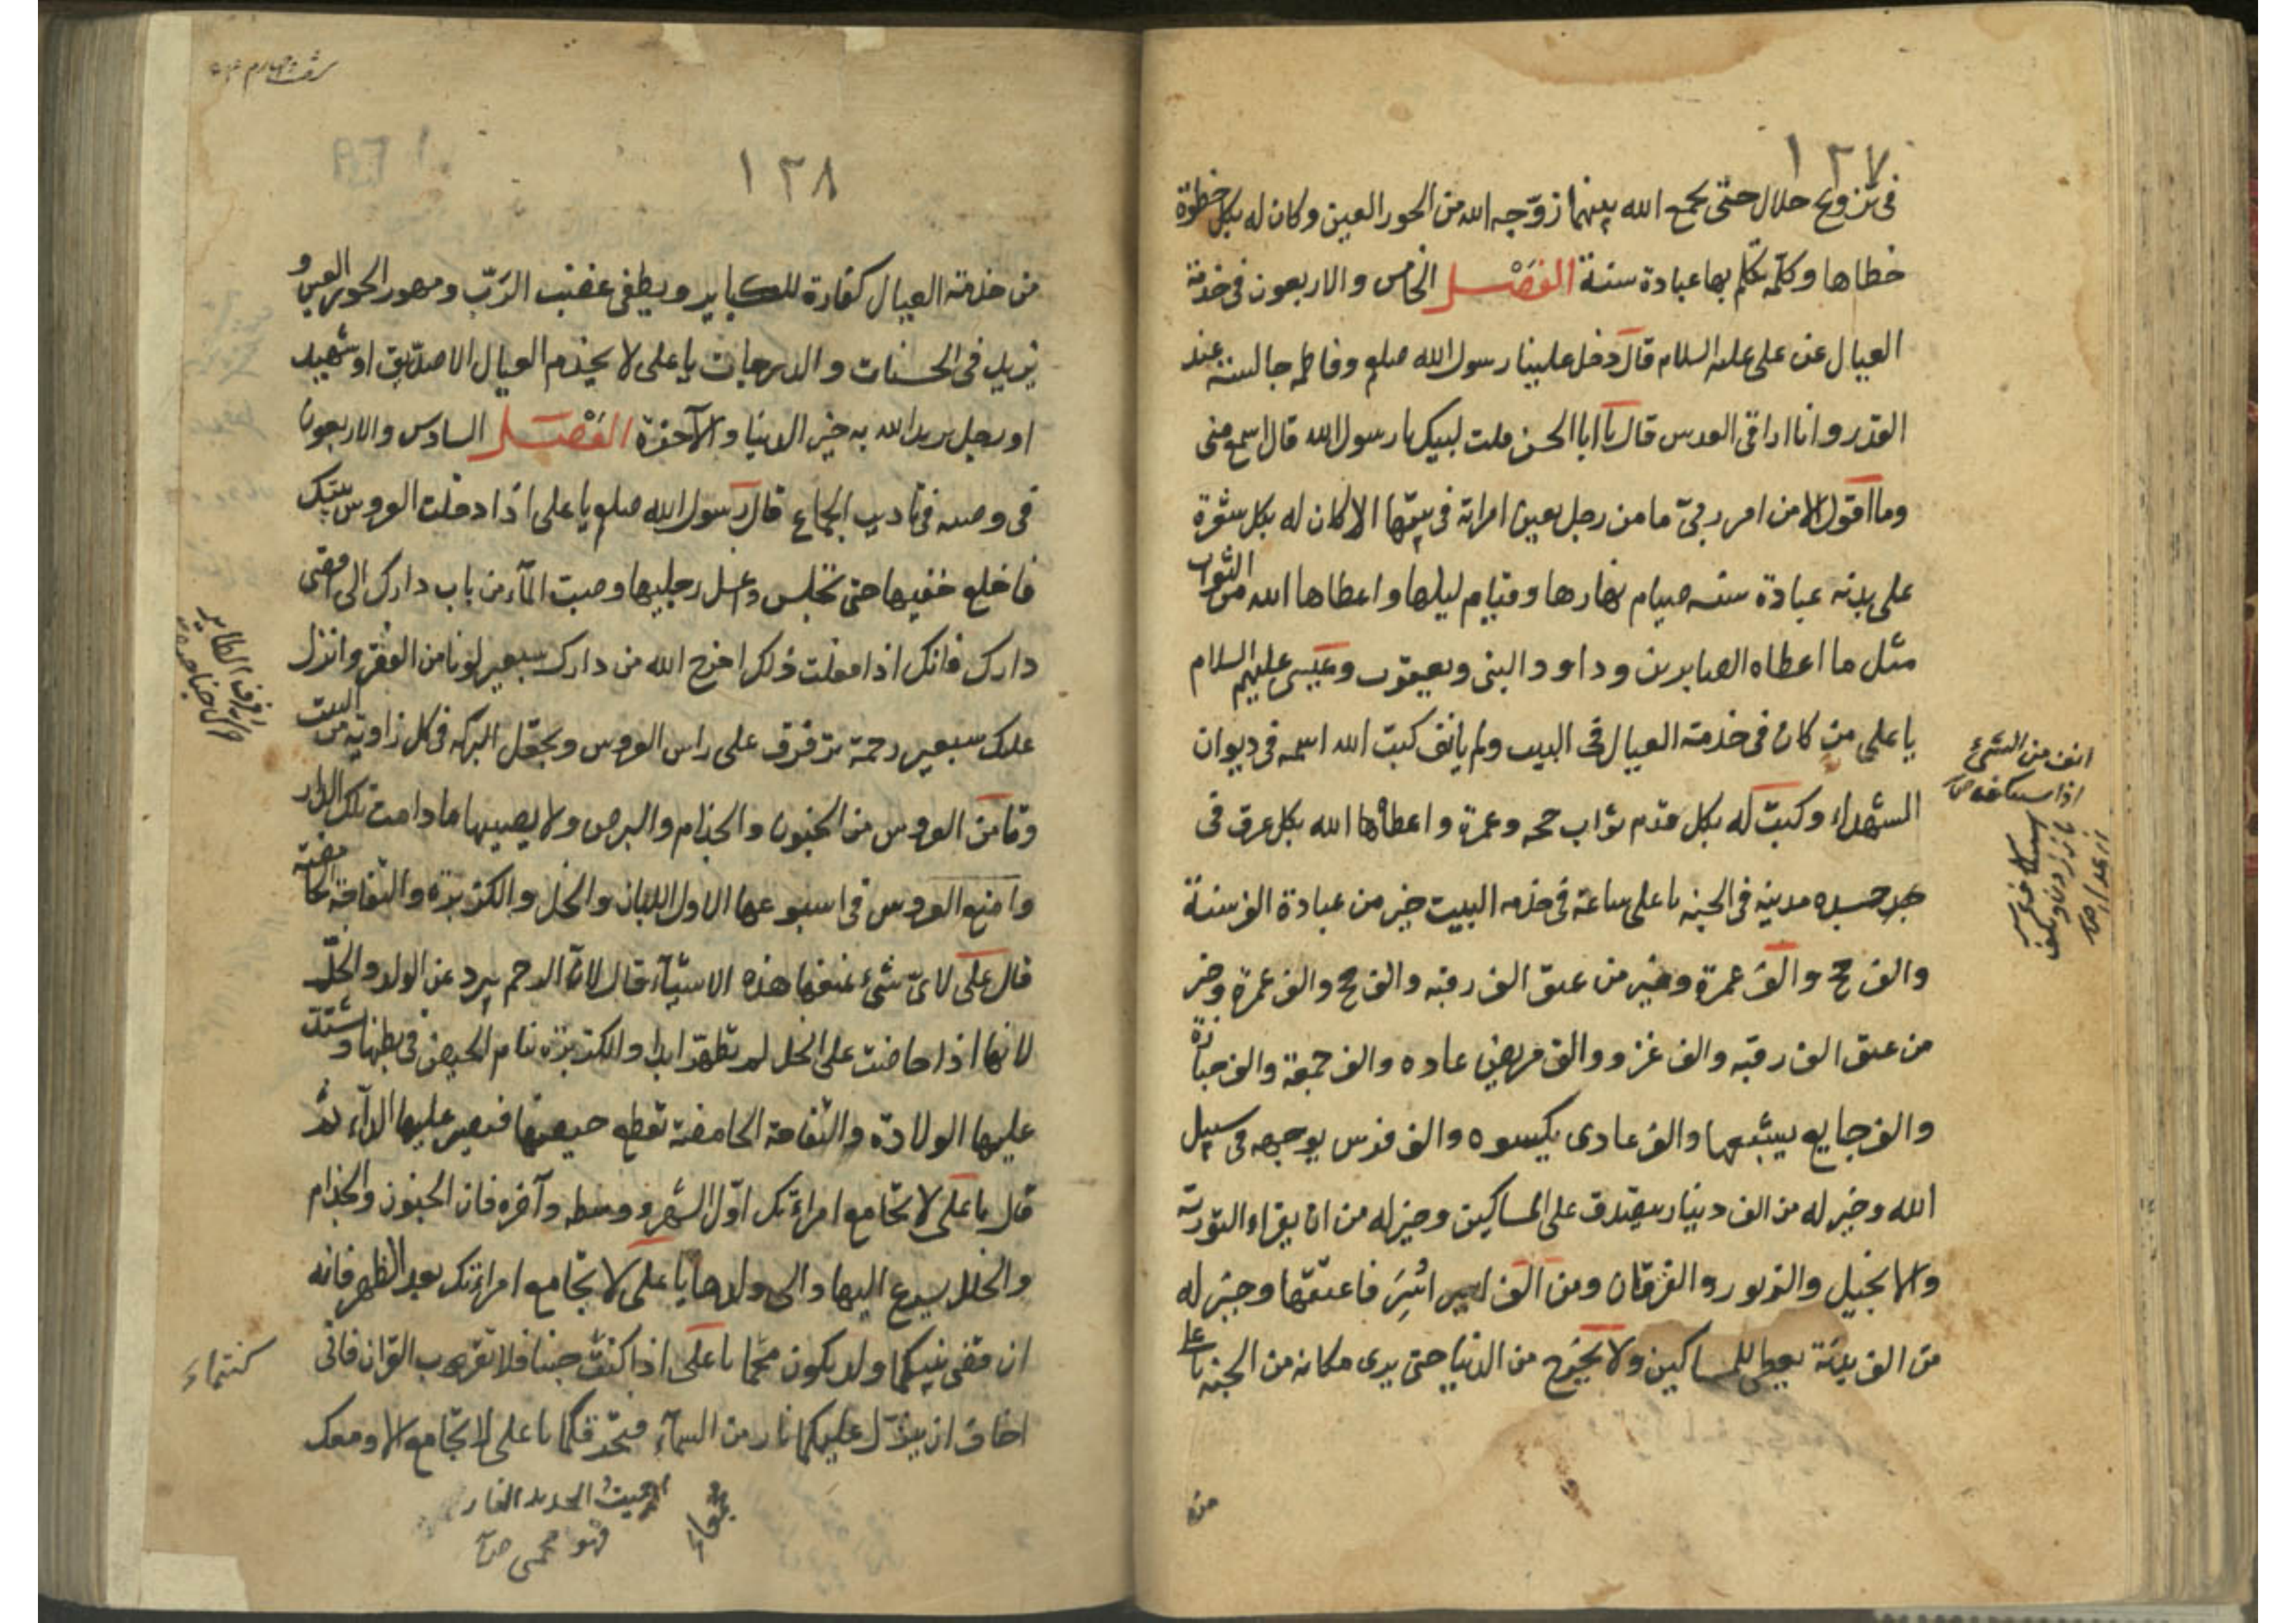 ١٣٧
فى تزويج حلال حتى يجمع الله بينهما زوّجه الله من الحور العين وكان له بكل خطوة
خطاها وكلمة تكلم بها عبادة سنة الفصل الخامس والاربعون فى خدمة
العيال عن على عليه السلام قال دخل علينا رسول الله صلعم وفاطمه جالسة عند
القدر وانا انقى العدس قال يا ابا الحسن قلت لبيك يا رسول الله قال اسمع منى
وما اقول الا من امر ربى ما من رجل يعين امراته فى بيتها الا كان له بكل شعرة
على بدنه عبادة سنه صيام نهارها وقيام ليلها واعطاها الله من الثواب
مثل ما اعطاه الصابرين وداود النبى ويعقوب وعيسى عليهم السلام
يا على من كان فى خدمة العيال فى البيت ولم يانف كتب الله اسمه فى ديوان
الشهداء وكتب له بكل قدم ثواب حجه وعمرة واعطاها الله بكل عرق فى
جسده مدينه فى الجنه يا على ساعة فى خدمه البيت خير من عبادة الف سنة
والف حج والف عمرة وخير من عتق الف رقبه والف حج والف عمرة وخير
من عتق الف رقبه والف غزو والف مريض عاده والف جمعة والف جنازة
والف جايع يشبعها والف عارى يكسوه والف فرس يوجهه فى سبيل
الله وخير له من الف دينار يتصدق على المساكين وخير له من ان يقراء التورية
والانجيل والزبور والفرقان ومن الف اسير اسر فاعتقها وخير له
من الف بدنة يعطى للمساكين ولا يخرج من الدنيا حتى يرى مكانه من الجنه يا على
انف من الشئ
اذا استنكف
١٣٨
من خدمة العيال كفارة للكباير ويطفى غضب الرّب ومهور الحور العين و
تزيد فى الحسنات والدرجات يا على لا يخدم العيال الا صدّيق او شهيد
او رجل يريد الله به خير الدنيا والآخرة الفصل السادس والاربعون
فى وصيه فى تاديب الجماع قال رسول الله صلعم يا على اذا دخلت العروس بيتك
فاخلع خفيها حتى تجلس واغسل رجليها وصبت المآء من باب دارك الى اقصى
دارك فانك اذا فعلت ذلك اخرج الله من دارك سبعين لونا من الفقر وانزل
عليك سبعين رحمة ترفرف على راس العروس ويجعل البركه فى كل زاوية من البيت
وتامن العروس من الجنون والجذام والبرص ولا يصيبها ما دامت تلك الدار
وامنع العروس فى اسبوعها الاول اللبان والخل والكزبزه والتفاحة الحامضة
قال على لاىّ شىء تمنعها هذه الاشيآء قال لانّ الرحم يبرد عن الولد والخلّ
لانها اذا حاضت على الخل لم تطهر ابدا والكزبزة تنام الحيض فى بطنها وتشتد
عليها الولادة والتفاحة الحامضة تقطع حيضتها فتصير عليها الدآء ثم
قال يا على لا تجامع امراءتك اوّل الشهر ووسطه وآخره فان الجنون والجذام
والخلل يسرع اليها والى ولدها يا على لا تجامع امراءتك بعد الظهر فانه
ان قضى بينكما ولد يكون يا على اذا كنت جنبا فلا تقرب القران فانى
اخاف ان ينزل عليكما نار من السمآء فتحرقكما يا على لا تجامع الا ومعك